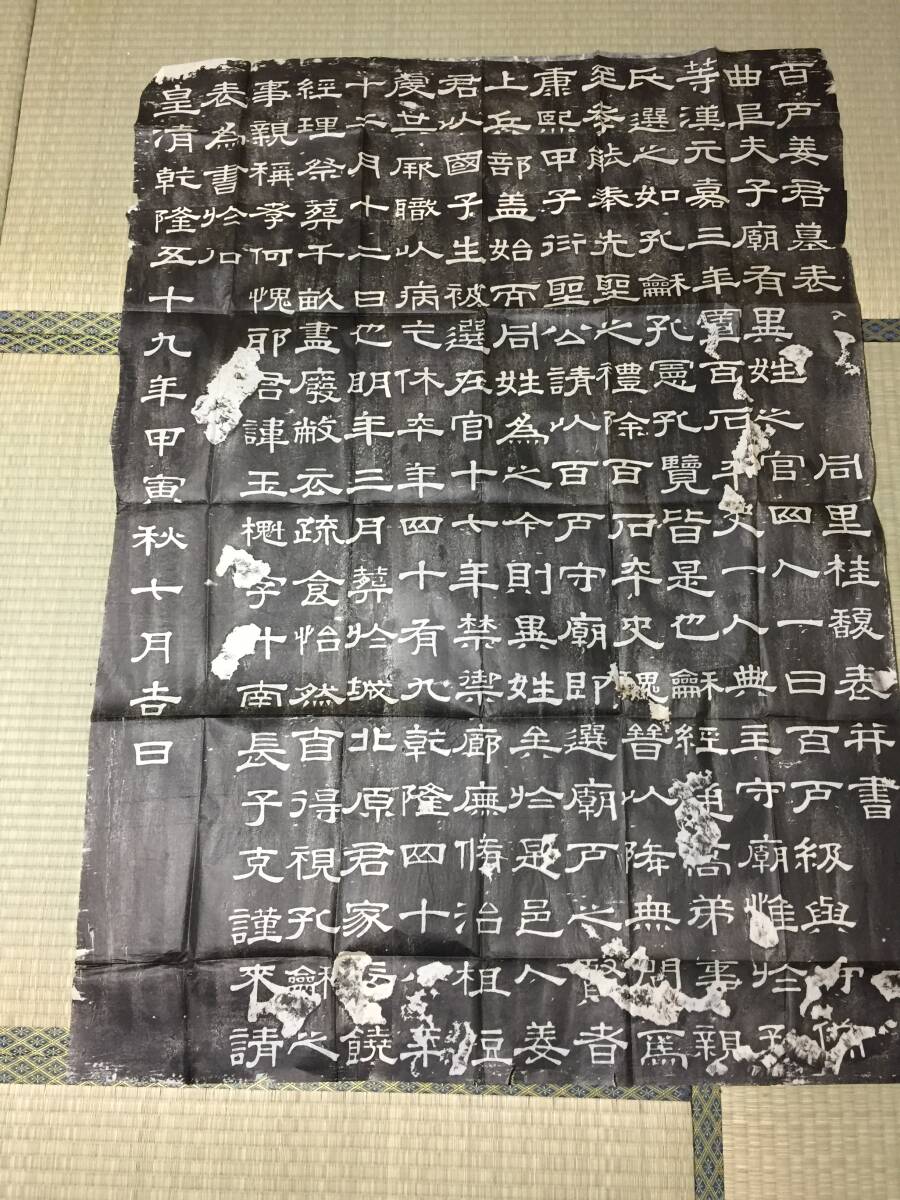 百戶姜君墓表 同里桂馥表并書
曲阜夫子廟有異姓之官四人一曰百戶級與守備
等漢元嘉三年置百石卒史一人典主守廟惟於孔
氏選之如孔龢孔憲孔覽皆是也龢經通高弟事親
至孝能奉先聖之禮除百石卒史魏晉以降無聞焉
康熙甲子衍聖公請以百戶守廟即選廟戶之賢者
上兵部蓋始而同姓為之今則異姓矣於是邑人姜
君以國子生被選在官十七年禁禦廊廡脩治俎豆
虔共厥職以病乞休卒年四十有九乾隆四十
十二月十二日也明年三月葬於城北原君家故饒
經理祭葬千畝盡廢敝衣疏食怡然自得視孔龢之
事親稱孝何愧耶君諱玉字斗南長子克謹來請
表為書於石
皇清乾隆五十九年甲寅秋七月吉日